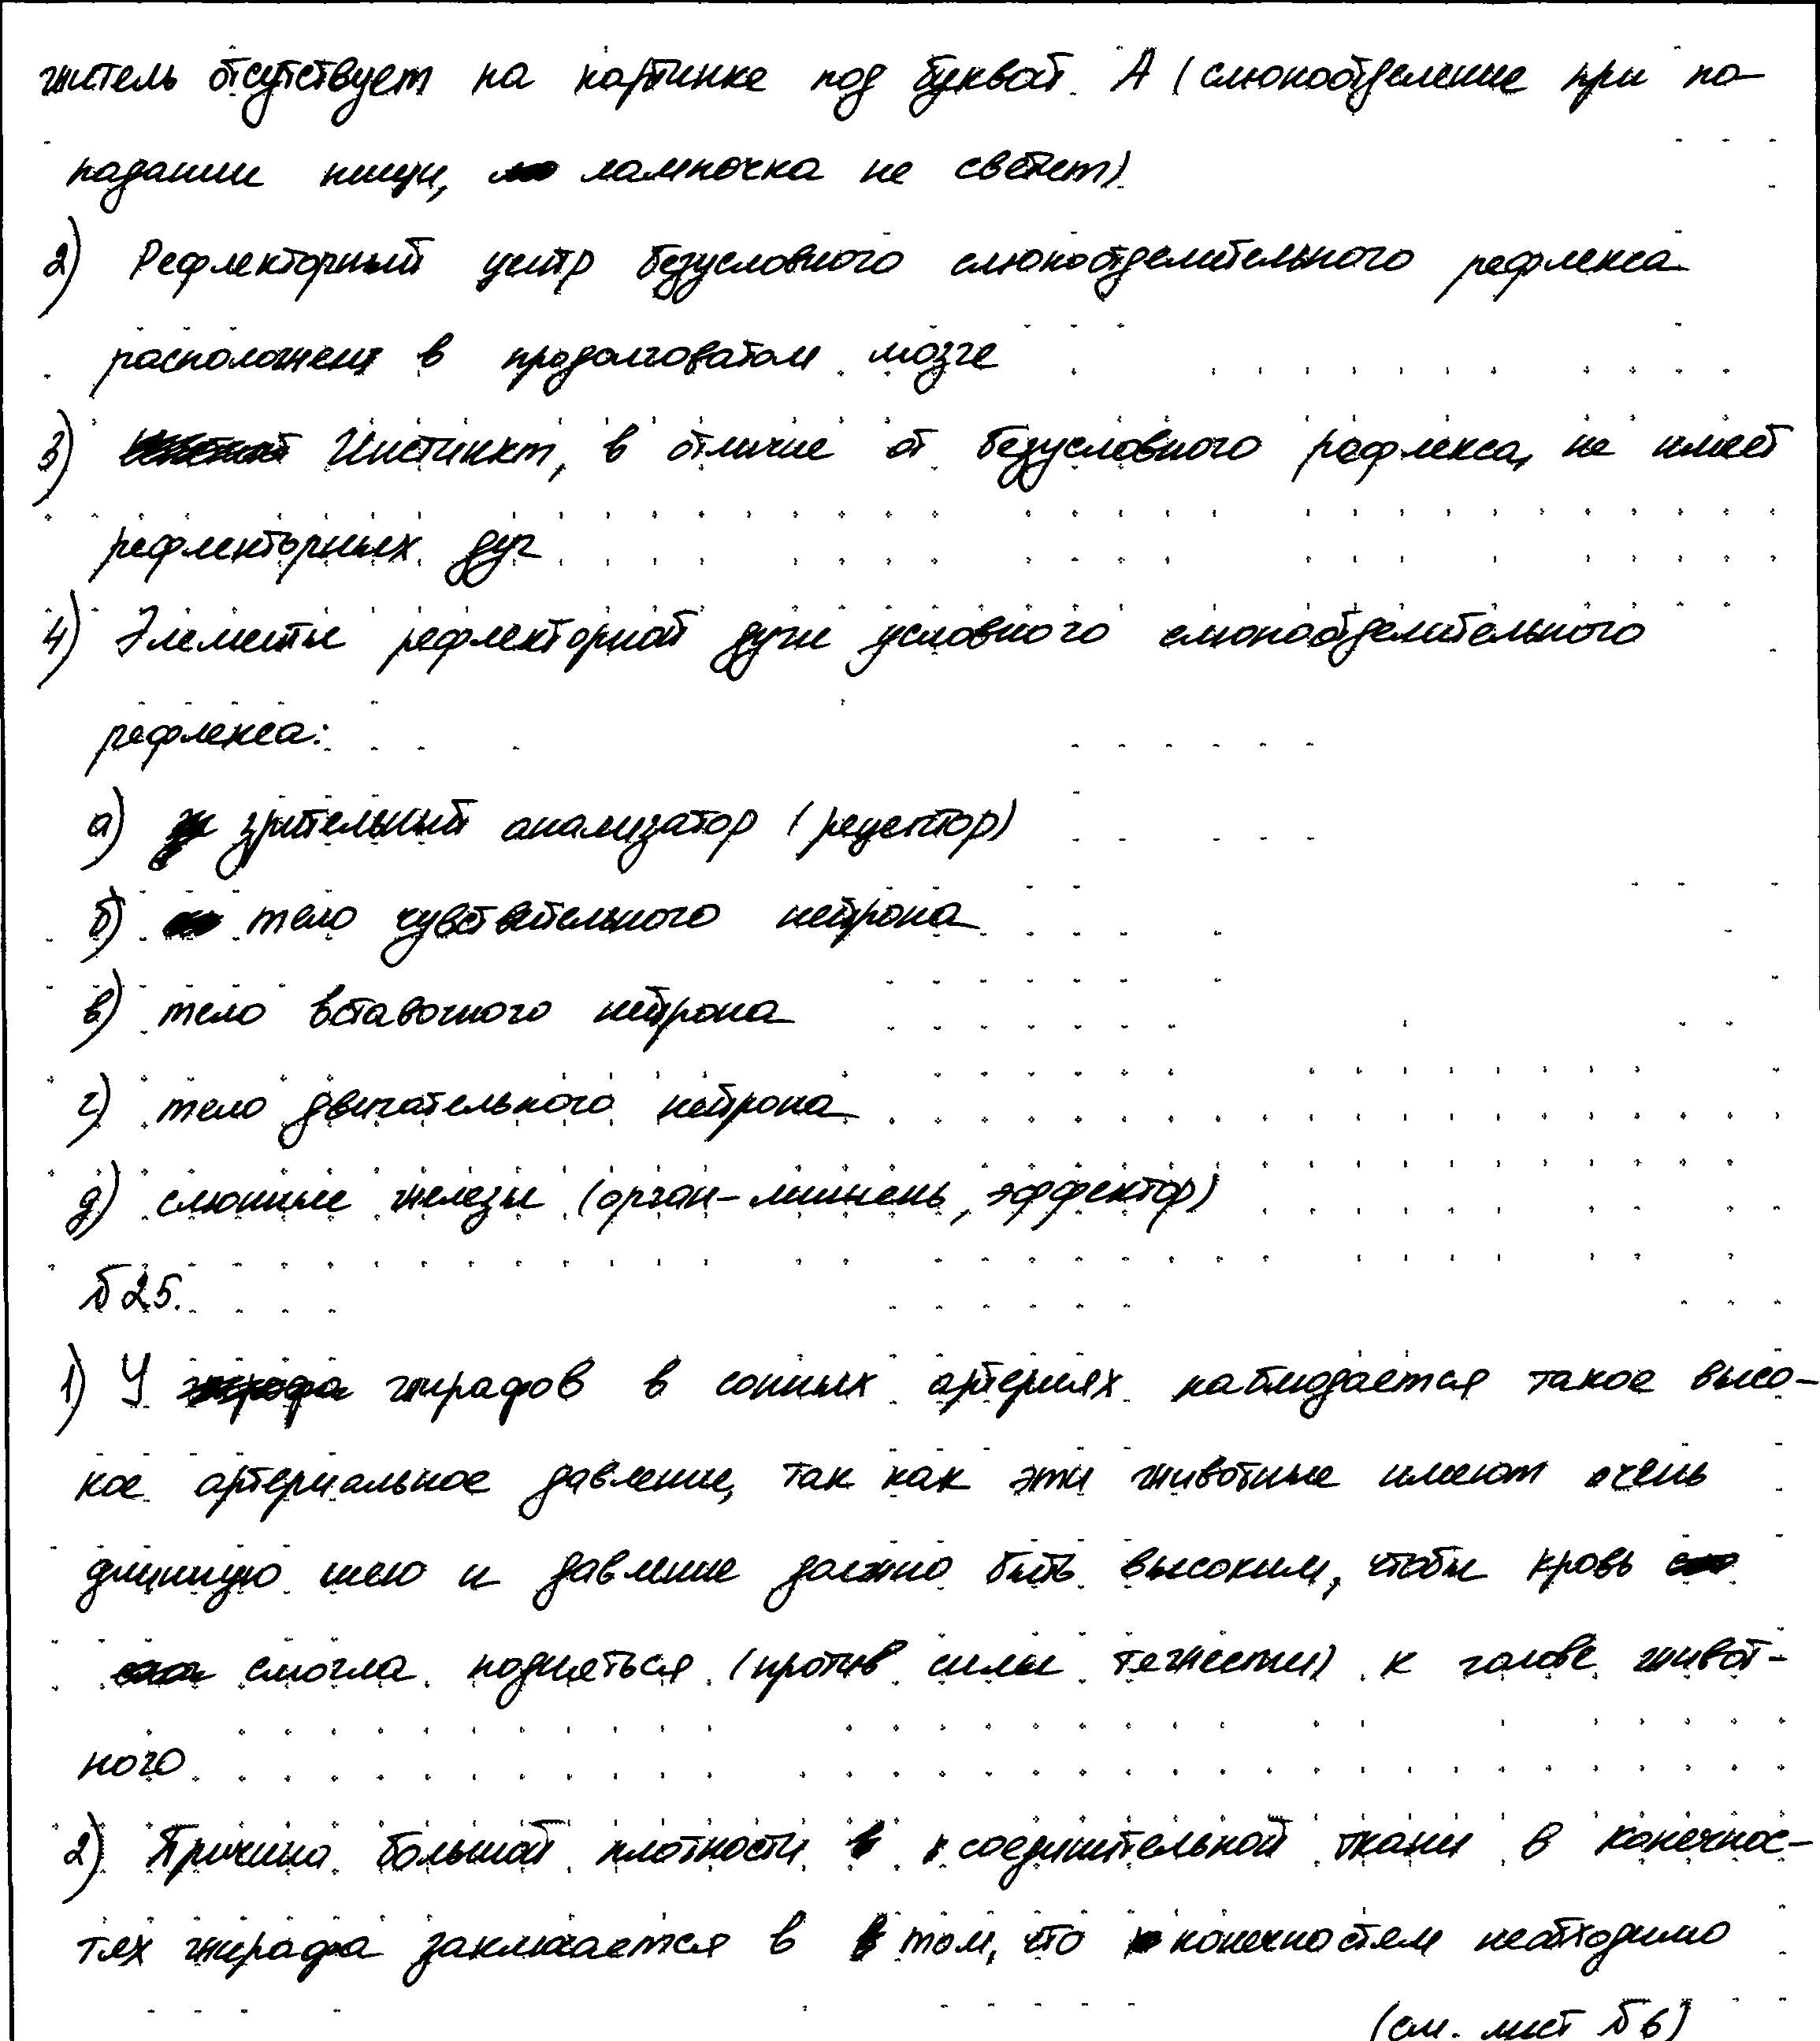 житель отсутствует на картинке под буквой А (слюноотделение при по-
падании пищи, лампочка не светет).
2) Рефлекторный центр безусловного слюноотделительного рефлекса
расположен в продолговатом мозге
3) Инстинкт, в отличие от безусловного рефлекса, не имеет
рефлекторных дуг
4) Элементы рефлекторной дуги условного слюноотделительного
рефлекса:
а) зрительный анализатор (рецептор)
б) тело чувствительного нейрона
в) тело вставочного нейрона
г) тело двигательного нейрона
д) слюнные железы (орган-мишень, эффектор)
№25.
1) У жирафов в сонных артериях наблюдается такое высо-
кое артериальное давление, так как эти животные имеют очень
длинную шею и давление должно быть высоким, чтобы кровь
смогла подняться (против силы тяжести) к голове живот-
ного
2) Причина большой плотности соединительной ткани в конечнос-
тях жирафа заключается в том, что конечностям необходимо
(см. лист №6)